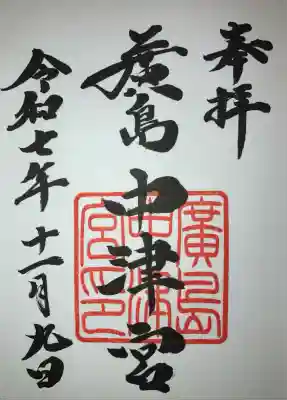 奉拝
廣島中津宮
令和七年十一月九日
廣島
中津
宮印